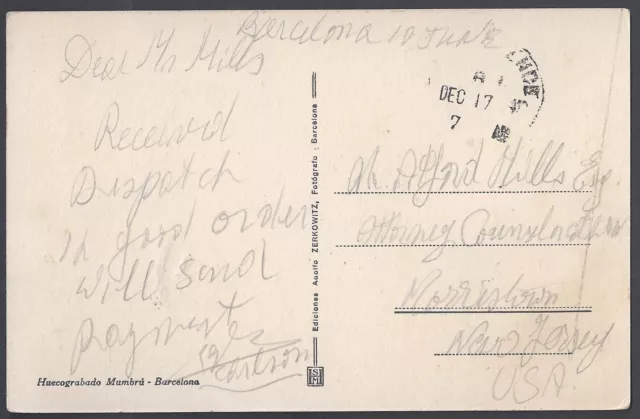 Barcelona 10
Dear Mr Mills
Received
Dispatch
in good order
will send
payment
Carlson
DEC 17
7
Mr. Alford Mills Esq.
Attorney Counselor
Morristown
New Jersey
USA.
Ediciones Adolfo ZERKOWITZ, Fotógrafo - Barcelona
Huecograbado Mumbrú - Barcelona